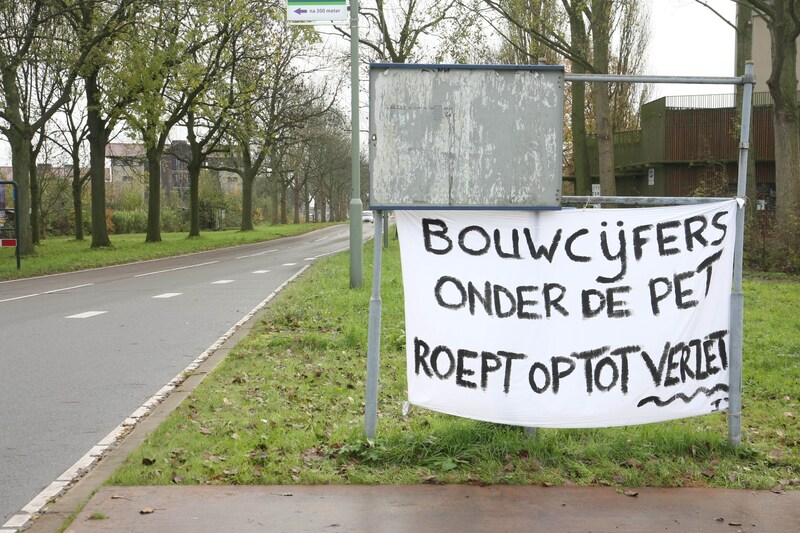 na 300 meter
BOUWCIJFERS
ONDER DE PET
ROEPT OP TOT VERZET